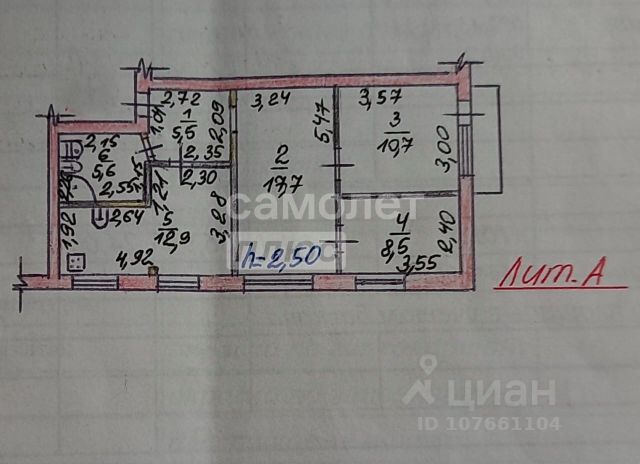 2,72
1,04
1
5,5
2,09
2,35
2,30
2,15
6
5,6
2,55
1,92
2,64
1,21
5
12,9
3,28
4,92
3,24
5,47
2
17,7
h=2,50
3,57
3
10,7
3,00
4
8,5
2,40
3,55
Лит. А
самолет
плюс
циан
ID 107661104